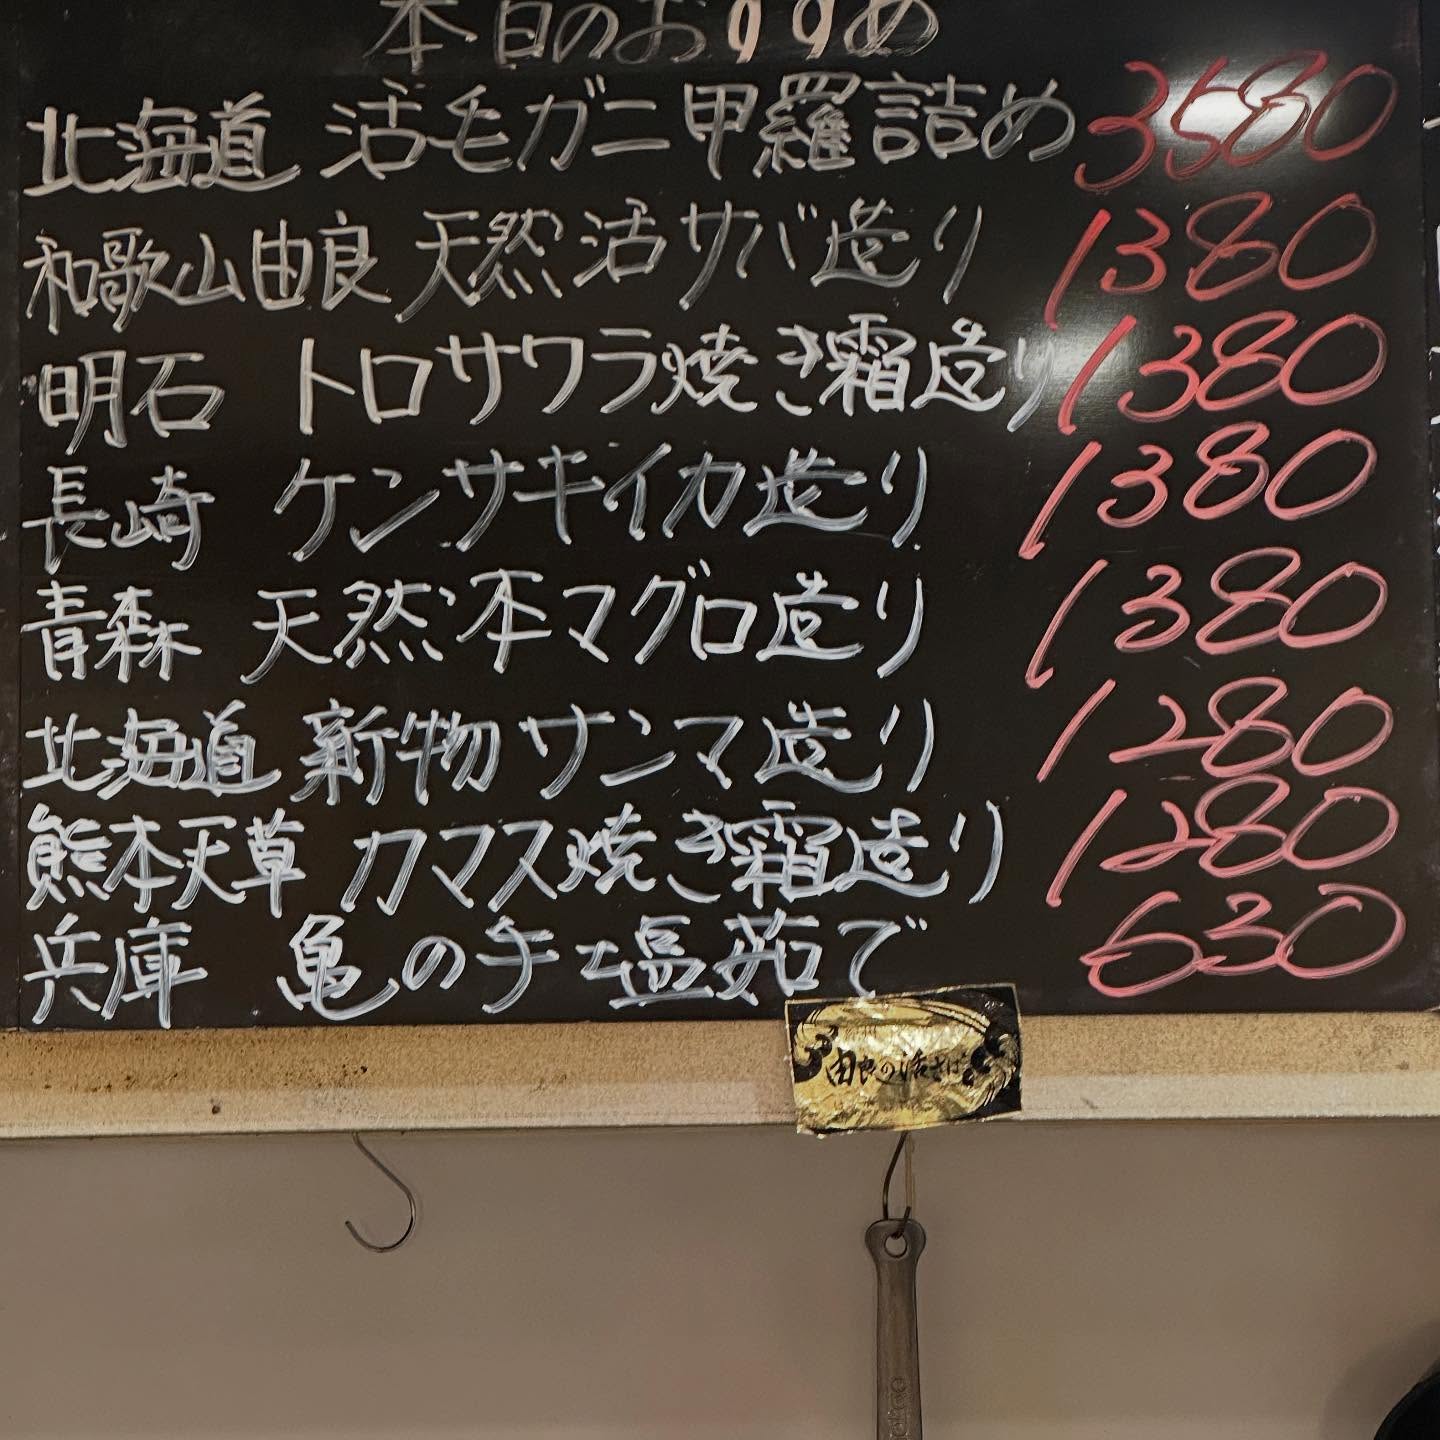 本日のおすすめ
北海道 活毛ガニ甲羅詰め 3580
和歌山由良 天然活サバ造り 1380
明石 トロサワラ焼き霜造り 1380
長崎 ケンサキイカ造り 1380
青森 天然本マグロ造り 1380
北海道 新物サンマ造り 1280
熊本天草 カマス焼き霜造り 1280
兵庫 亀の手塩茹で 630
由良の活さば